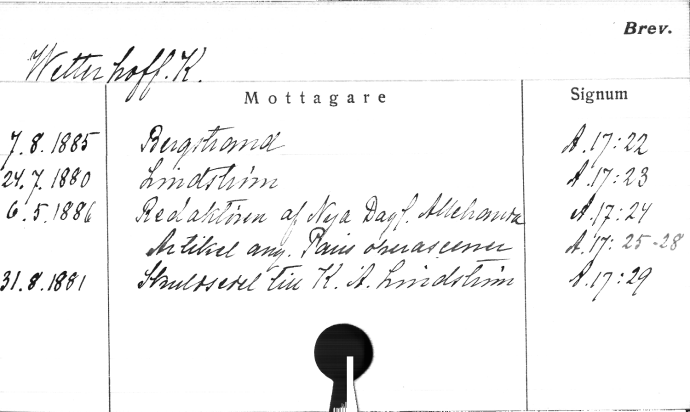 Brev.
Wetterhoff. K.
Mottagare Signum
7. 8. 1885 Bergstrand A. 17: 22
24. 7. 1880 Lindström A. 17: 23
6. 5. 1886 Redaktören af Nya Dagl. Allehanda A. 17: 24
Artikel ang. Paris operascener A. 17: 25-28
31. 8. 1881 Skuldsedel till K. A. Lindström A. 17: 29